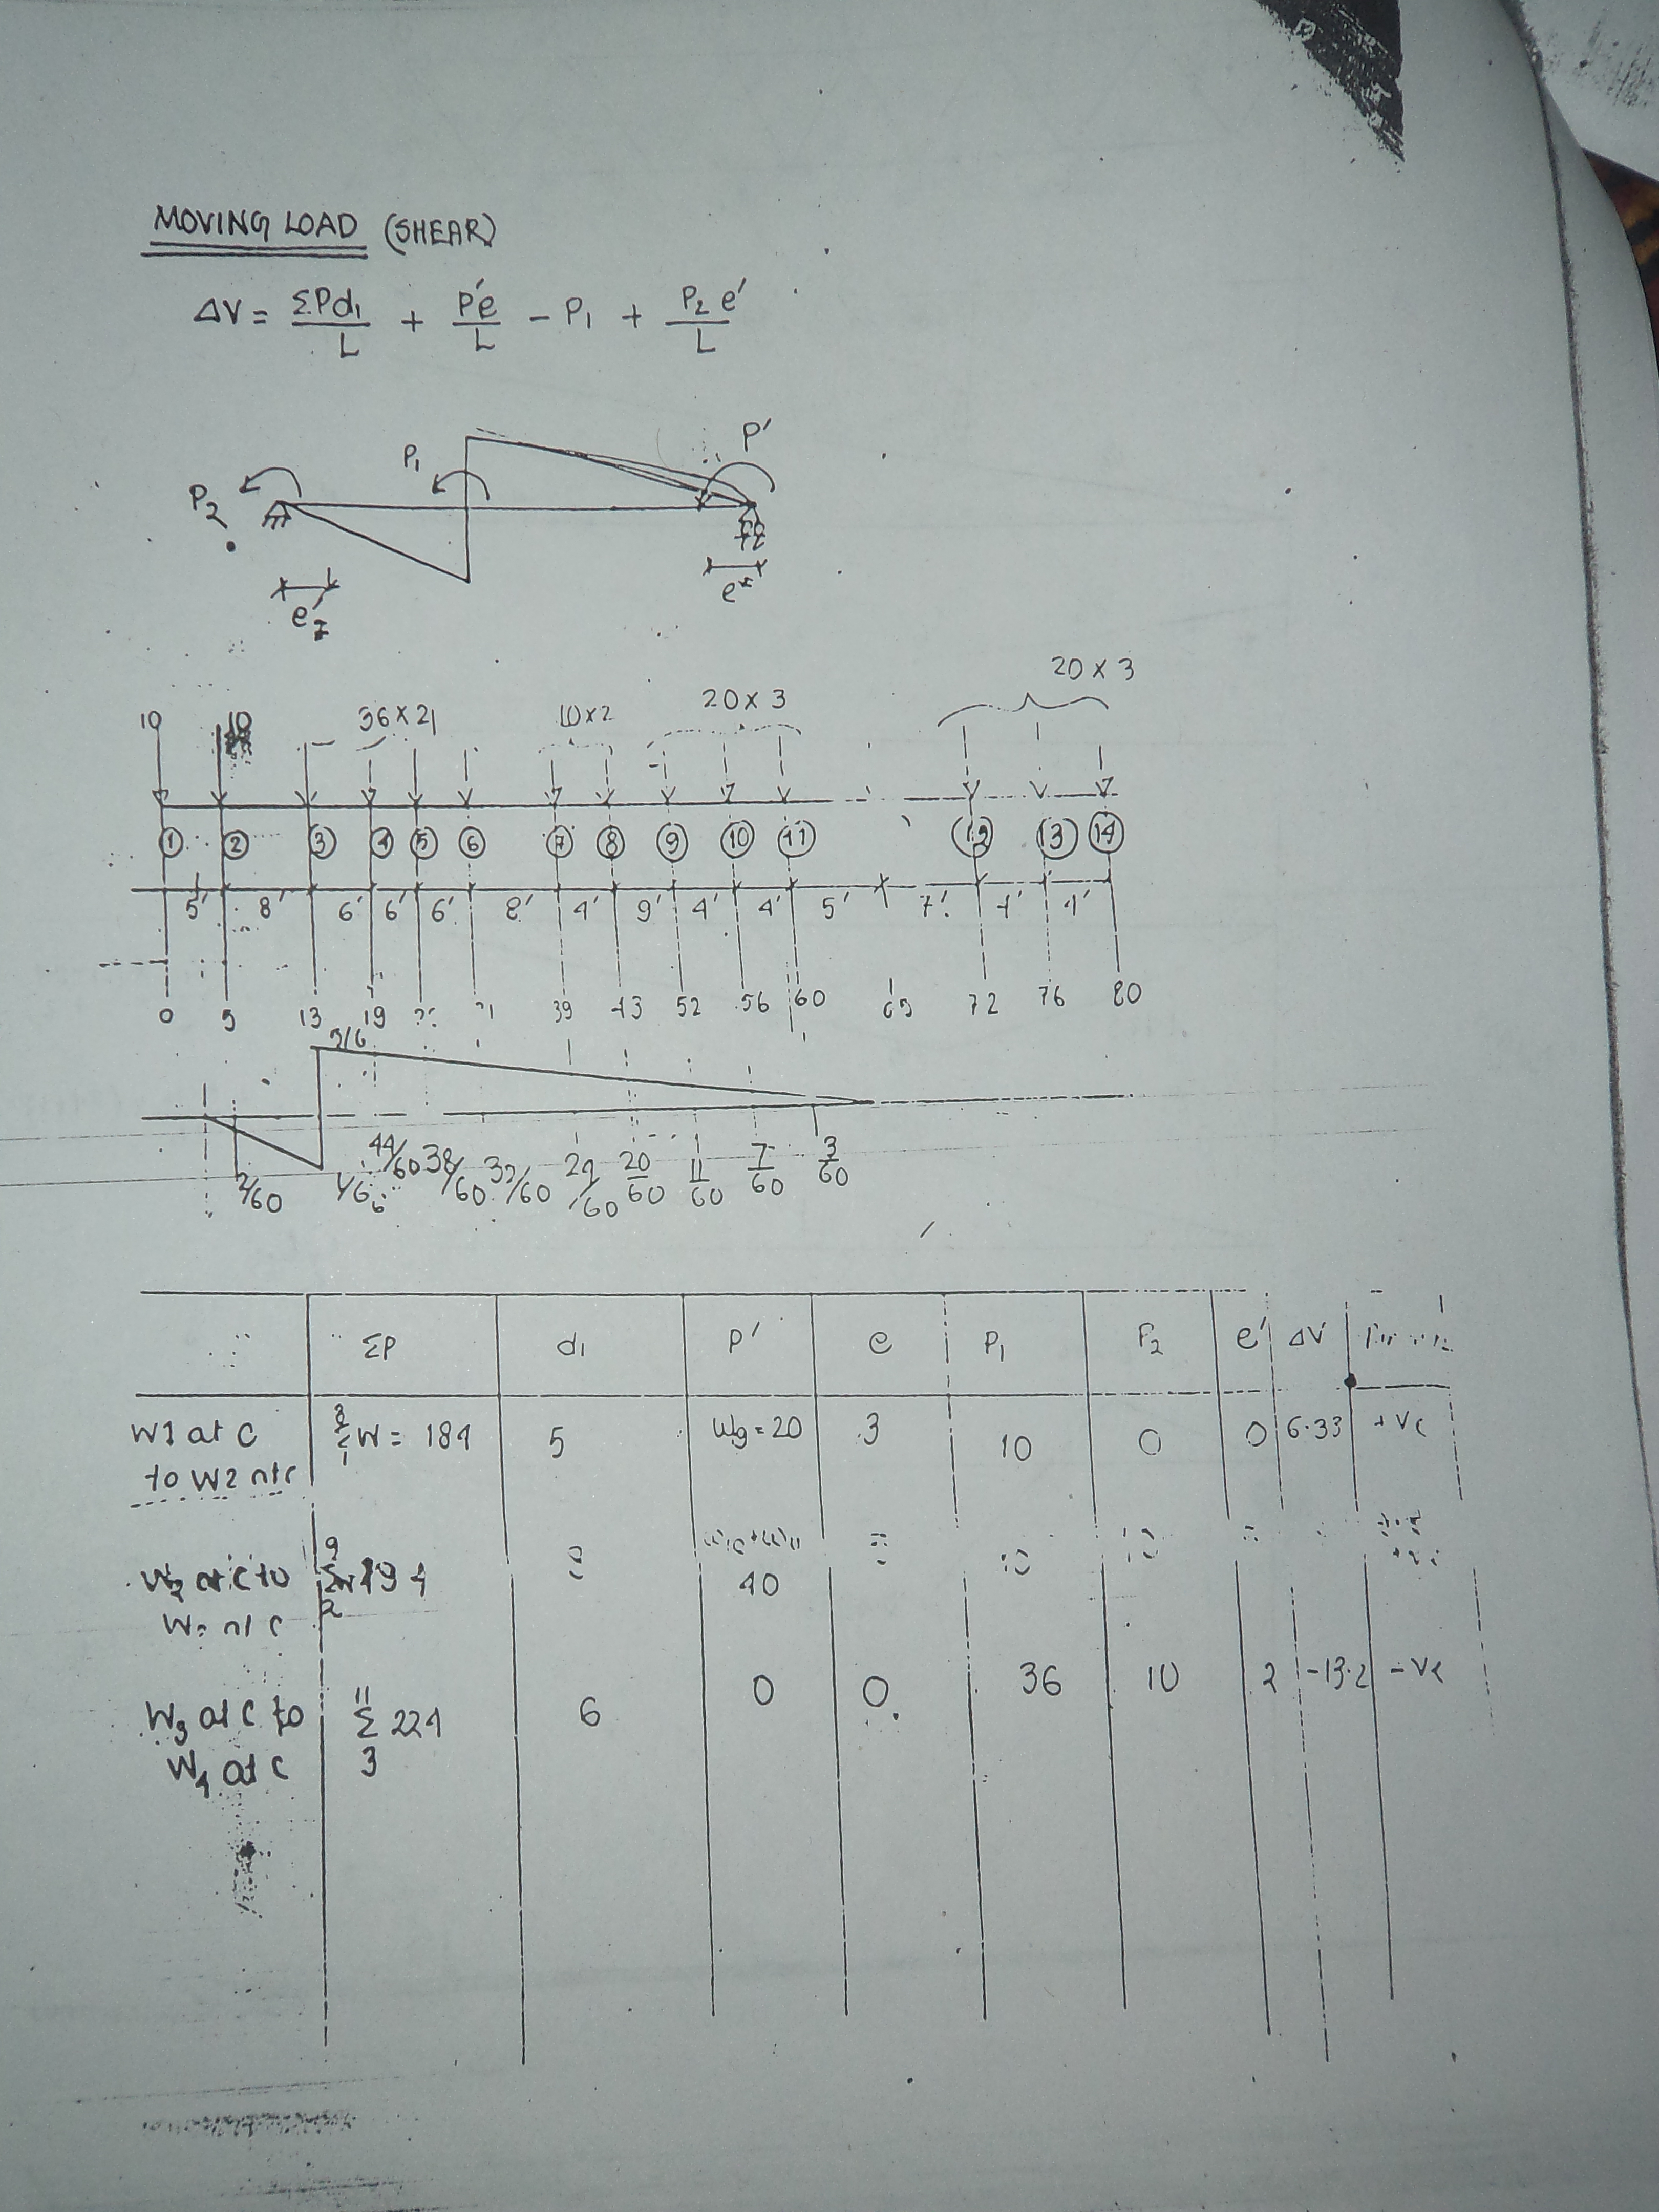 MOVING LOAD (SHEAR)
ΔV = ΣPd₁/L + P'e/L - P₁ + P₂e'/L
P₂ P₁ P'
e' e
20 x 3
10 10 36 x 2 10 x 2 20 x 3
① ② ③ ④ ⑤ ⑥ ⑦ ⑧ ⑨ ⑩ ⑪ ⑫ ⑬ ⑭
5' 8' 6' 6' 6' 8' 4' 9' 4' 4' 5' 7' 4' 4'
0 5 13 19 39 43 52 56 60 65 72 76 80
5/6
2/60 1/6 44/60 38/60 32/60 24/60 20/60 11/60 7/60 3/60
ΣP d₁ P' e P₁ P₂ e' ΔV
W1 at C 8Σ1 W = 184 5 W9 = 20 3 10 0 0 6.33 +ve
to W2 at C
W2 at C to 9Σ2 194 W10+W11 40
at C
W3 at C to 11Σ3 224 6 0 0 36 10 2 -13.2 -ve
W4 at C